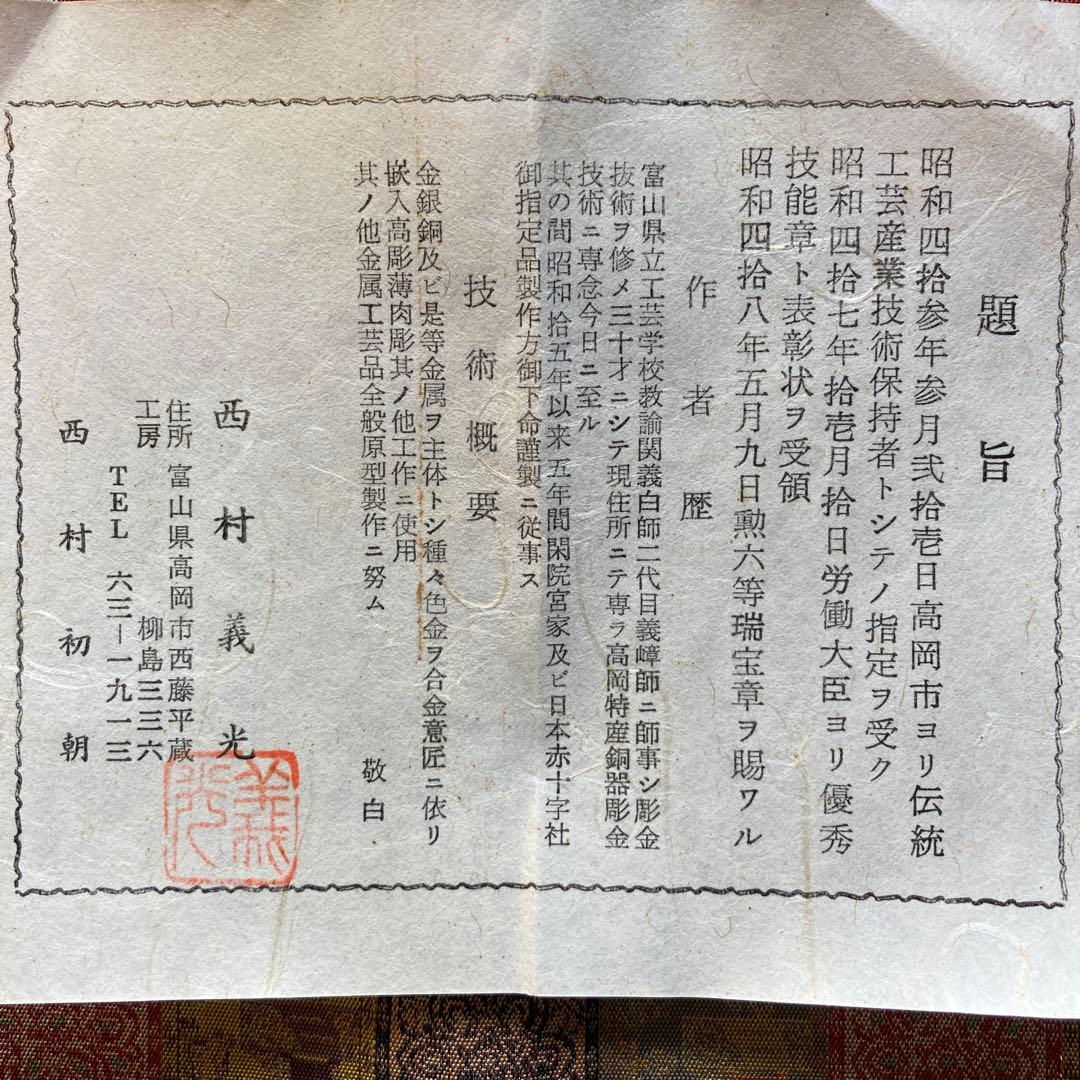 題旨
昭和四拾参年参月弐拾壱日高岡市ヨリ伝統
工芸産業技術保持者トシテノ指定ヲ受ク
昭和四拾七年拾壱月拾日労働大臣ヨリ優秀
技能章ト表彰状ヲ受領
昭和四拾八年五月九日勲六等瑞宝章ヲ賜ワル
作者歴
富山県立工芸学校教諭関義白師二代目義嶂師ニ師事シ彫金
抜術ヲ修メ三十才ニシテ現住所ニテ専ラ高岡特産銅器彫金
技術ニ専念今日ニ至ル
其の間昭和拾五年以来五年間閑院宮家及ビ日本赤十字社
御指定品製作方御下命謹製ニ従事ス
技術概要
金銀銅及ビ是等金属ヲ主体トシ種々色金ヲ合金意匠ニ依リ
嵌入高彫薄肉彫其ノ他工作ニ使用
其ノ他金属工芸品全般原型製作ニ努ム
敬白
西村義光
住所 富山県高岡市西藤平蔵
工房 柳島三三六
TEL 六三ー一九一三
西村初朝
義光